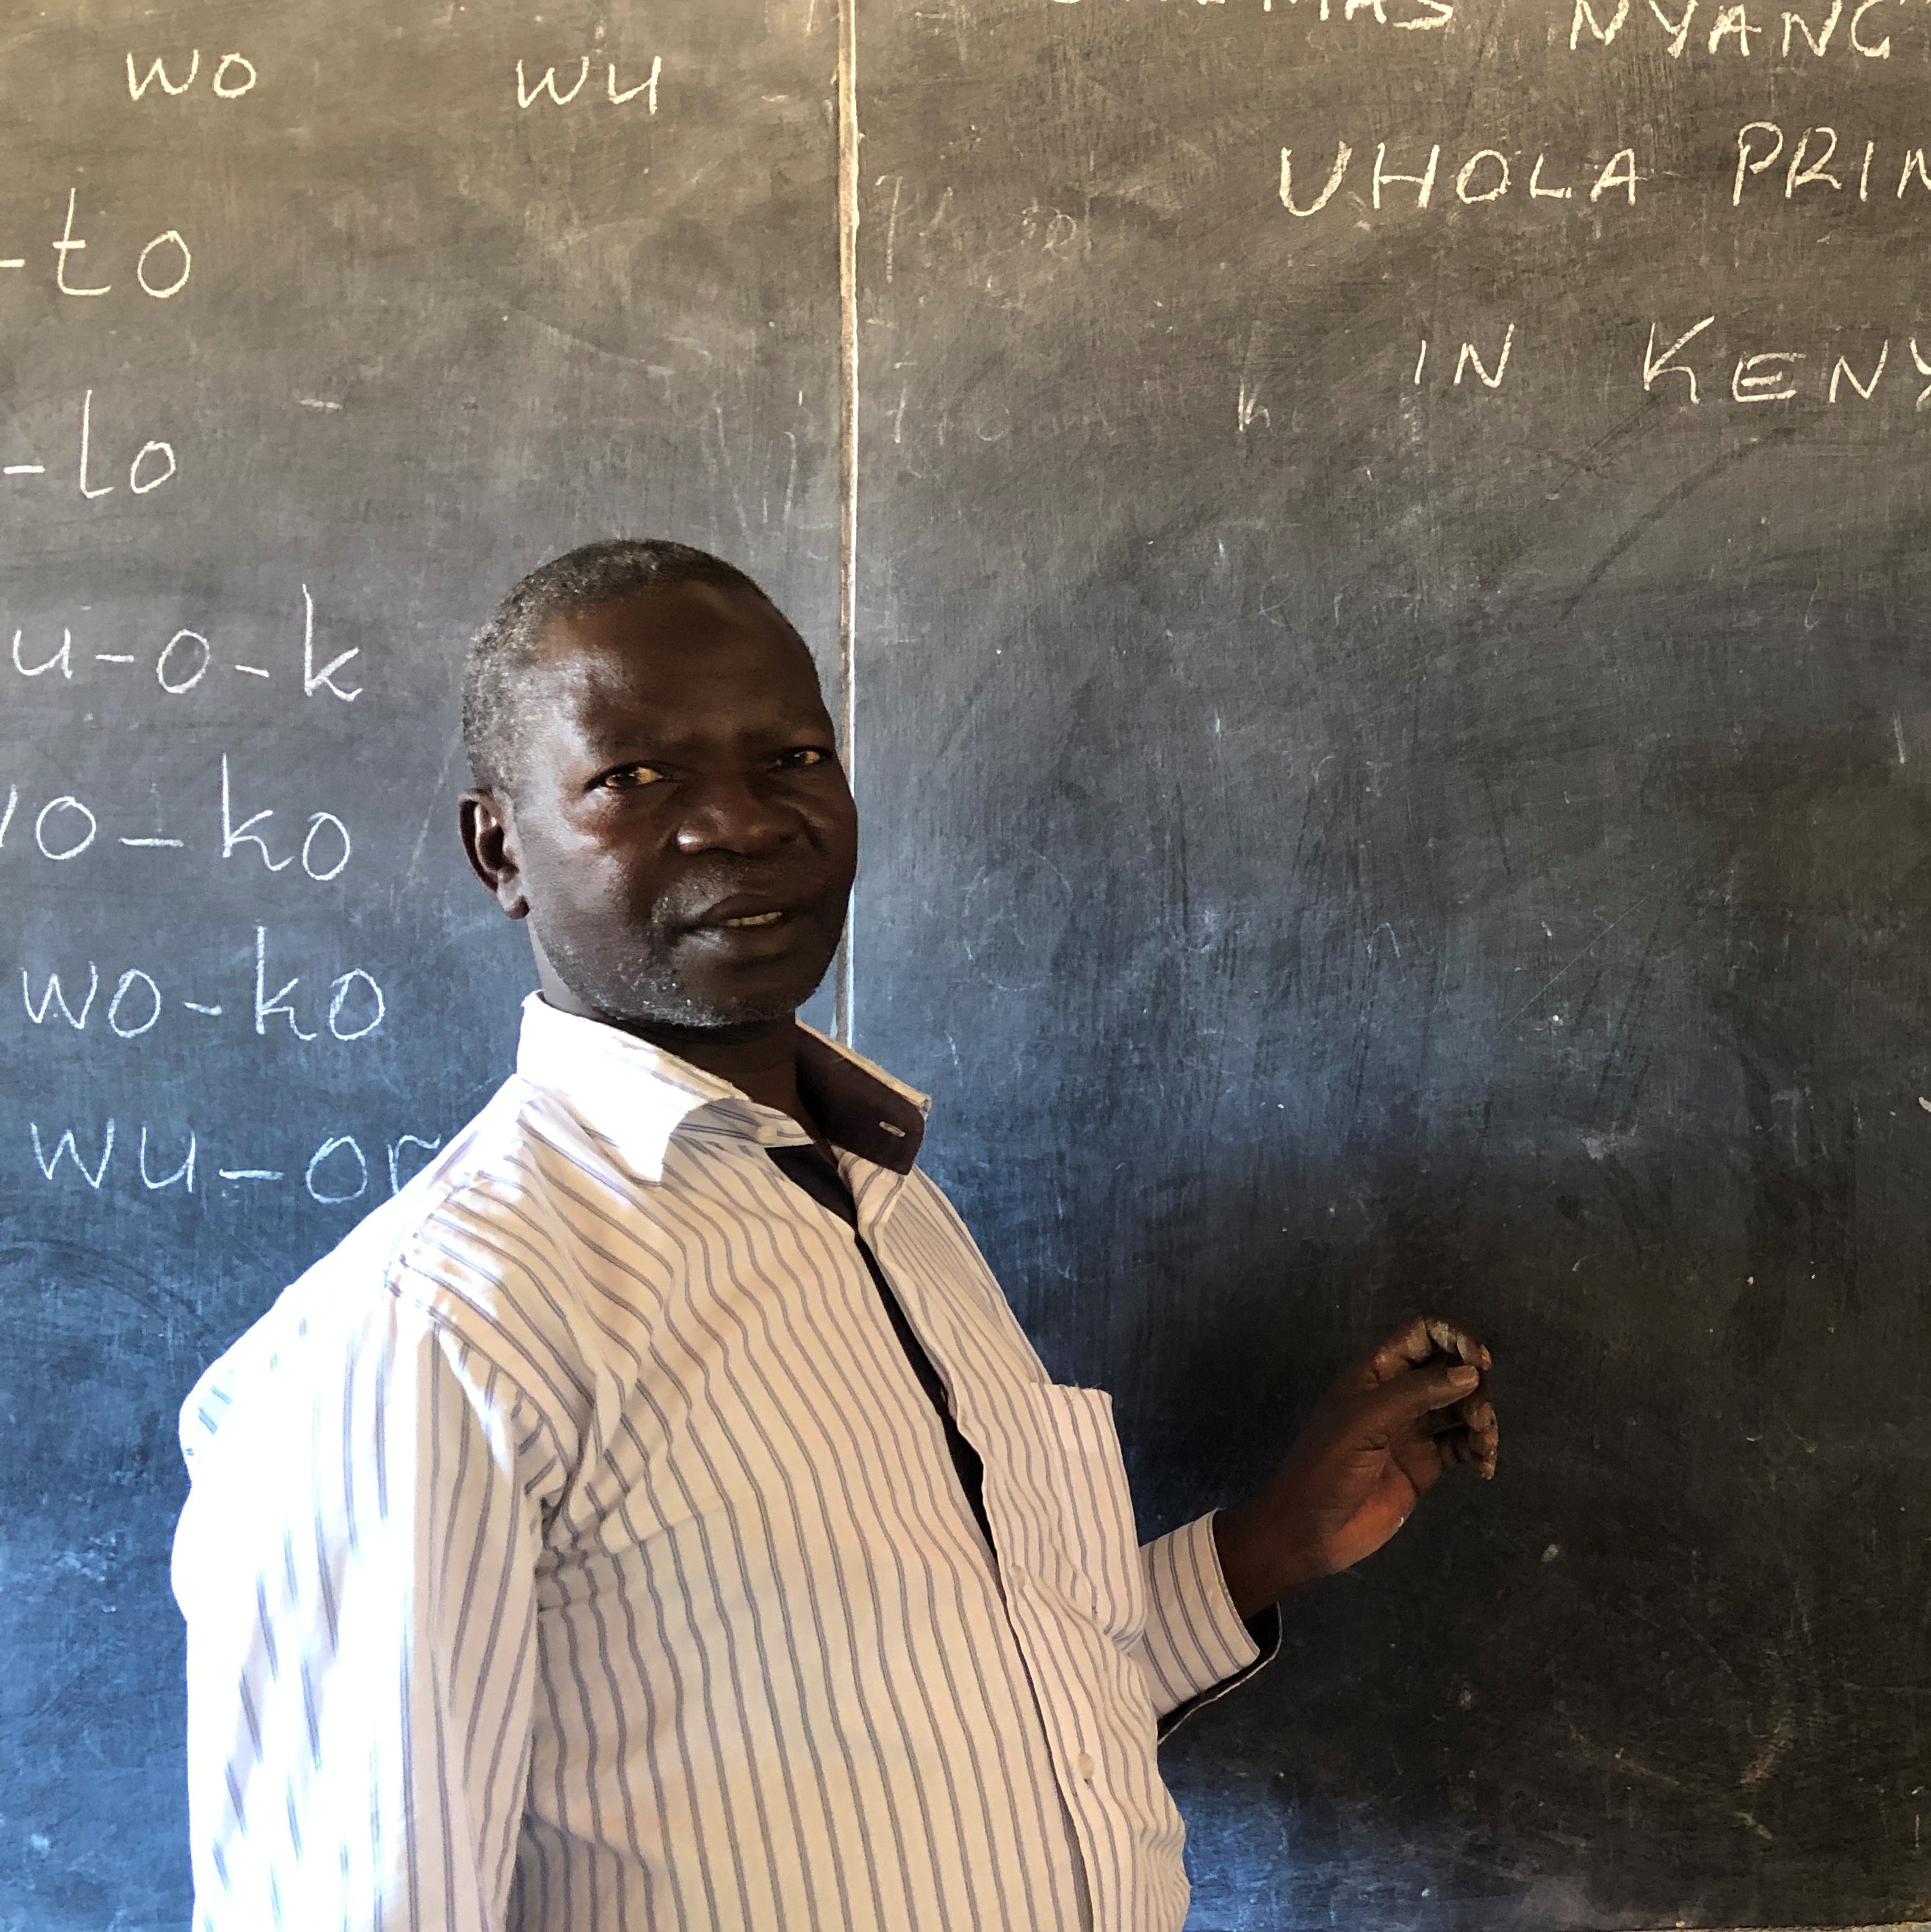 wo wu
-to
-lo
u-o-k
wo-ko
wo-ko
wu-or
NYANG'
UHOLA PRIM
IN KENY